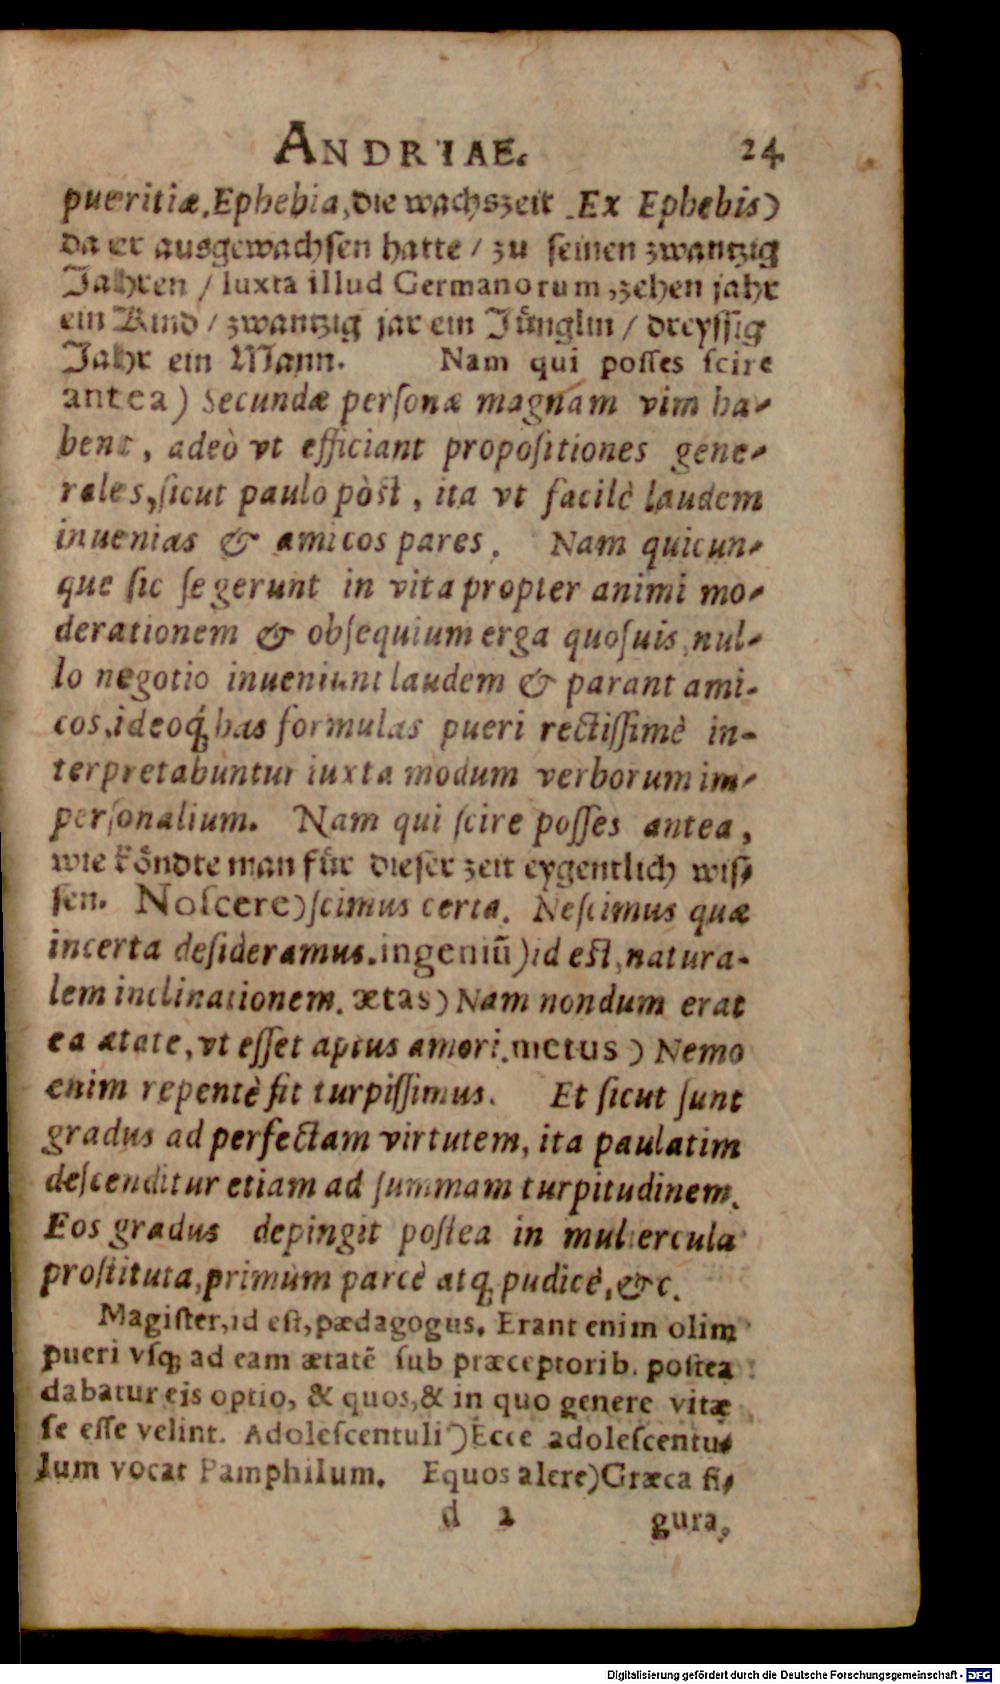 ANDRIAE. 24
pueritiæ. Ephebia, die wachszeit. Ex Ephebis)
da er ausgewachsen hatte / zu seinen zwantzig
Jahren / Iuxta illud Germanorum, zehen jahr
ein Kind / zwantzig jar ein Jůnglin / dreyſſig
Jahr ein Mann. Nam qui poſſes ſcire
antea) Secundæ perſonæ magnam vim ha-
bent, adeò vt efficiant propoſitiones gene-
rales, ſicut paulo pòſt, ita vt facilè laudem
inuenias & amicos pares. Nam quicun-
que ſic ſe gerunt in vita propter animi mo-
derationem & obſequium erga quoſuis, nul-
lo negotio inueniunt laudem & parant ami-
cos, ideoq́; has formulas pueri rectiſſimè in-
terpretabuntur iuxta modum verborum im-
perſonalium. Nam qui ſcire poſſes antea,
wie kőndte man fůr dieser zeit eygentlich wiſ-
ſen. Noſcere) ſcimus certa. Neſcimus quæ
incerta deſideramus. ingeniũ) id eſt, natura-
lem inclinationem. ætas) Nam nondum erat
ea ætate, vt eſſet aptus amori. metus) Nemo
enim repentè fit turpiſſimus. Et ſicut ſunt
gradus ad perfectam virtutem, ita paulatim
deſcenditur etiam ad ſummam turpitudinem.
Eos gradus depingit poſtea in muliercula
proſtituta, primum parcè atq; pudicè, &c.
Magiſter, id eſt, pædagogus. Erant enim olim
pueri vſq; ad eam ætatē ſub præceptorib. poſtea
dabatur eis optio, & quos, & in quo genere vitæ
ſe eſſe velint. Adoleſcentuli) Ecce adoleſcentu-
lum vocat Pamphilum. Equos alere) Græca fi-
d 2 gura,
Digitalisierung gefördert durch die Deutsche Forschungsgemeinschaft - DFG